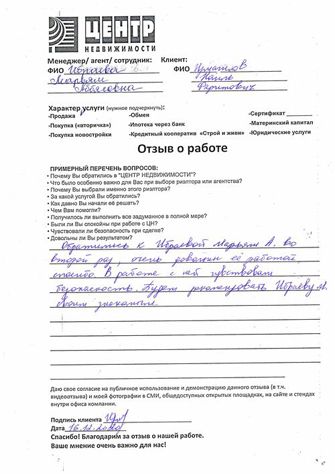 ЦЕНТР
НЕДВИЖИМОСТИ
Менеджер/ агент/ сотрудник: Клиент:
ФИО Ибраева ФИО
Марьям Наиль
Фаритович
Характер услуги (нужное подчеркнуть):
-Продажа -Обмен -Сертификат
-Покупка «вторичка») -Ипотека через банк -Материнский капитал
-Покупка новостройки -Кредитный кооператив «Строй и живи» -Юридические услуги
Отзыв о работе
ПРИМЕРНЫЙ ПЕРЕЧЕНЬ ВОПРОСОВ:
• Почему Вы обратились в "ЦЕНТР НЕДВИЖИМОСТИ"?
• Что было особенно важно для Вас при выборе риэлтора или агентства?
• Почему выбрали именно этого риэлтора?
• За какой услугой Вы обратились?
• Как давно Вы начали её решать?
• Чем Вам помогли?
• Получилось ли выполнить все задуманное в полной мере?
• Были ли Вы спокойны при работе с ЦН?
• Чувствовали ли безопасность при сделке?
• Довольны ли Вы результатом?
Обратились к Ибраевой Марьям А. во
второй раз, очень довольны её работой
спасибо В работе с ней чувствовали
безопасность. Будем рекомендовать Ибраеву М.
своим знакомым.
Даю свое согласие на публичное использование и демонстрацию данного отзыва (в т.ч.
видеоотзыва) и моей фотографии в СМИ, общедоступных открытых площадках, на сайте и стендах
внутри офиса компании.
Подпись клиента
Дата 16.12.2020
Спасибо! Благодарим за отзыв о нашей работе.
Ваше мнение очень важно для нас!